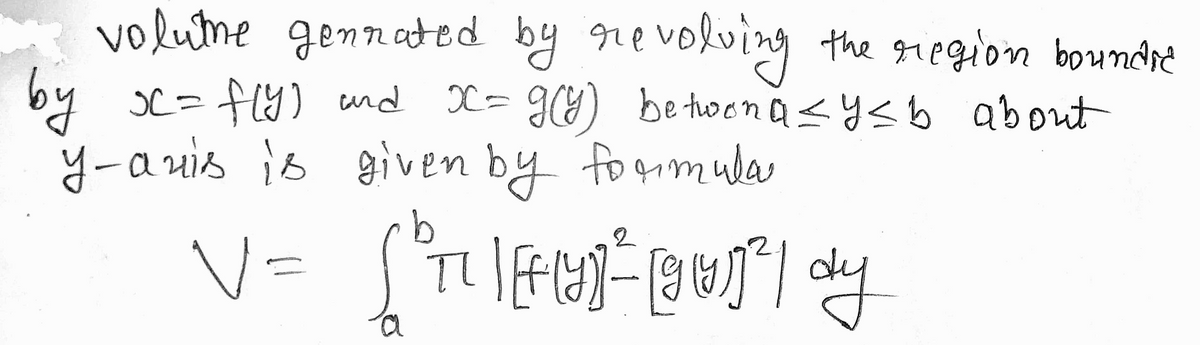 volume gennated by revolving the region boundre
by x = f(y) and x = g(y) between a ≤ y ≤ b about
y-axis is given by formula
V = ∫ₐᵇ π |[f(y)]² - [g(y)]²| dy